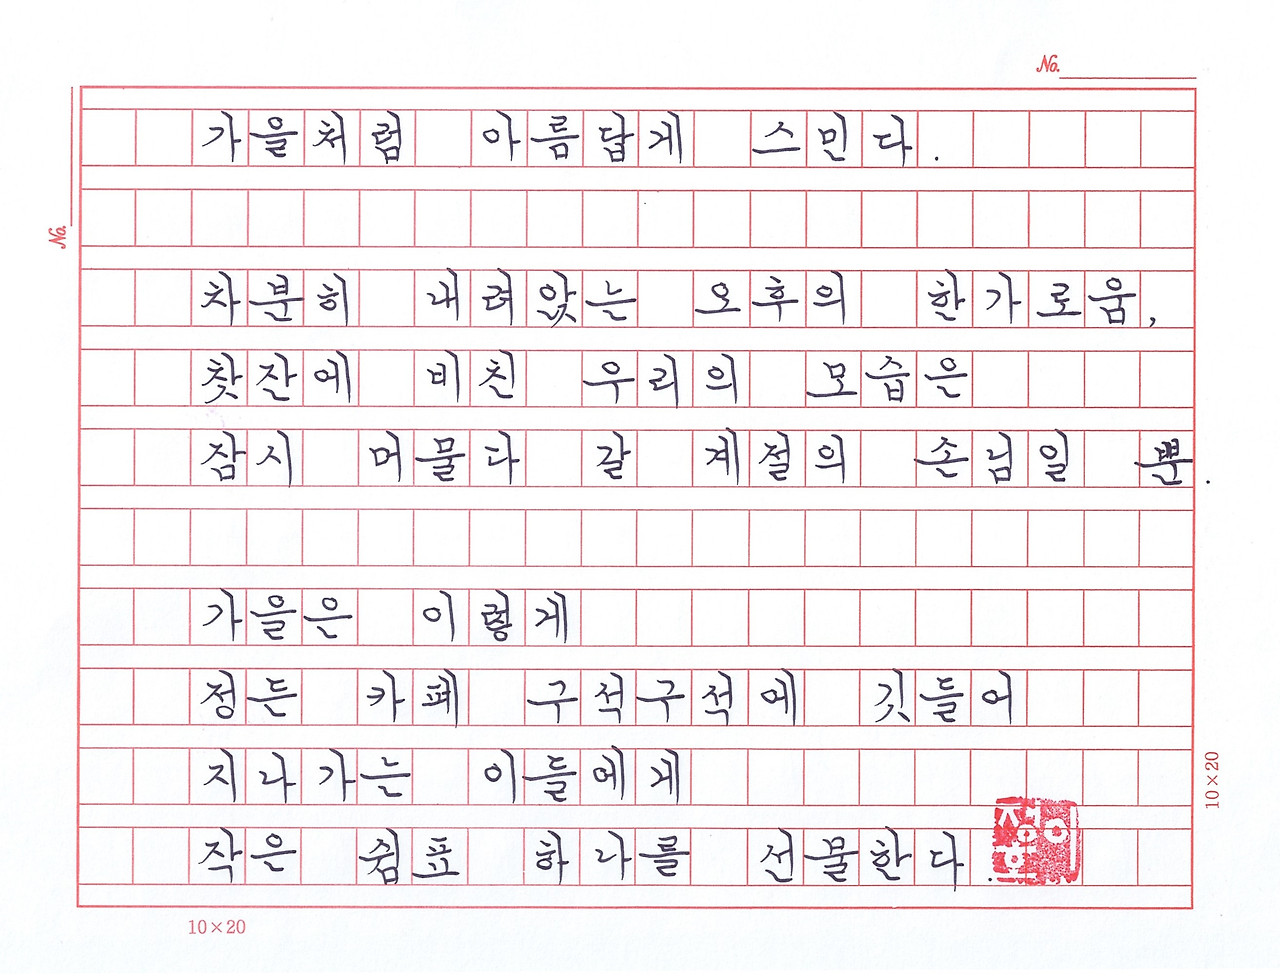 No.
가을처럼 아름답게 스민다.
차분히 내려앉는 오후의 한가로움,
찻잔에 비친 우리의 모습은
잠시 머물다 갈 계절의 손님일 뿐.
가을은 이렇게
정든 카페 구석구석에 깃들어
지나가는 이들에게
작은 쉼표 하나를 선물한다.
No.
10×20
10×20